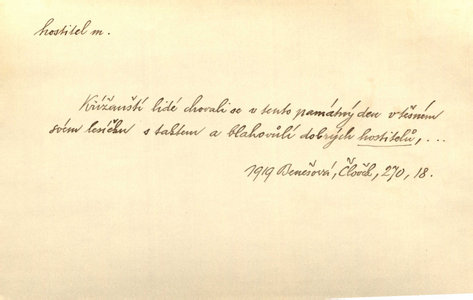 hostitel m.
Křižanští lidé chovali se v tento památný den v těsném
svém lesíčku s taktem a blahovůlí dobrých hostitelů, ...
1919 Benešová, Člověk, 270, 18.